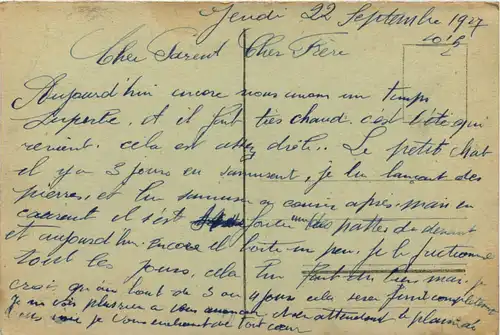 Jeudi 22 Septembre 1927
Cher Parent Cher Frère
Aujourd'hui encore nous avons un temps
superbe. et il fait très chaud. c'est l'été qui
revient. cela est assez drôle. Le petit chat
il y a 3 jours en s'amusant, je lui lançait des
pierres, et lui s'amusait a courir après. mais en
courant il s'est foulé une des pattes du devant
et aujourd'hui encore il boite un peu, je le frictionne
tout les jours, cela lui fait du bien mais. je
crois qu'au bout de 3 ou 4 jours cela sera fini complètement
Je ne vois plus rien a vous annoncer et en attendant le plaisir de
vous je vous embrasse de tout cœur